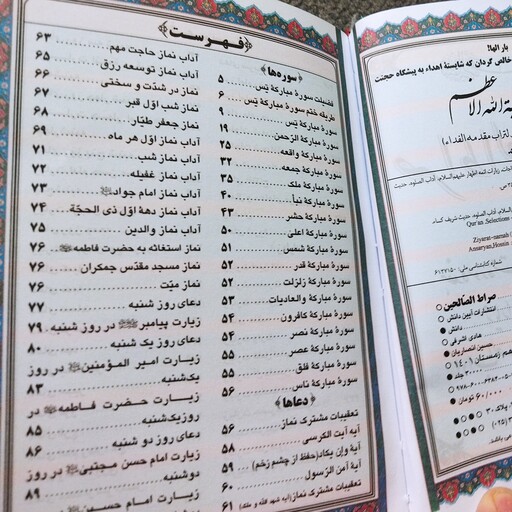 فهرست
﴿سوره‌ها﴾
فضیلت سورۀ مبارکۀ یس ۵
طریقه ختم سورۀ مبارکۀ یس ۶
سورۀ مبارکۀ یس ۹
سورۀ مبارکۀ الرّحمن ۱۹
سورۀ مبارکۀ واقعه ۲۵
سورۀ مبارکۀ جمعه ۳۲
سورۀ مبارکۀ ملک ۳۵
سورۀ مبارکۀ نبأ ۴۰
سورۀ مبارکۀ حشر ۴۳
سورۀ مبارکۀ اعلی ۵۰
سورۀ مبارکۀ شمس ۵۱
سورۀ مبارکۀ قدر ۵۲
سورۀ مبارکۀ زلزلت ۵۲
سورۀ مبارکۀ و العادیات ۵۳
سورۀ مبارکۀ کافرون ۵۴
سورۀ مبارکۀ نصر ۵۴
سورۀ مبارکۀ عصر ۵۵
سورۀ مبارکۀ فلق ۵۵
سورۀ مبارکۀ ناس ۵۶
﴿دعاها﴾
تعقیبات مشترک نماز ۵۶
آیه آیت الکرسی ۵۸
آیه وإن یکاد(حفظ از چشم زخم) ۵۹
آیه آمن الرّسول ۶۰
تعقیبات مشترک نماز(آیه شهد الله و ملک) ۶۱
آداب نماز حاجت مهم ۶۳
آداب نماز توسعه رزق ۶۵
نماز در شدّت و سختی ۶۶
نماز شب اوّل قبر ۶۷
نماز جعفر طیّار ۶۸
آداب نماز اوّل هر ماه ۶۹
آداب نماز شب ۷۱
آداب نماز غفیله ۷۲
آداب نماز امام جواد ۷۳
آداب نماز دهۀ اوّل ذی الحجّة ۷۴
آداب نماز والدین ۷۵
نماز استغاثه به حضرت فاطمه ۷۶
نماز مسجد مقدّس جمکران ۷۶
نماز میّت ۷۶
دعای روز شنبه ۷۷
زیارت پیامبر در روز شنبه ۷۹
دعای روز یک شنبه ۸۰
زیارت امیر المؤمنین در روز
یک‌شنبه ۸۳
زیارت حضرت فاطمه در
روز یک‌شنبه ۸۵
دعای روز دو شنبه ۸۶
زیارت امام حسن مجتبی در روز
دوشنبه ۸۹
زیارت امام حسین
بار الها!
خالص گردان که شایستۀ اهداء به پیشگاه حجتت
لتراب مقدمه الفداء)
Qur'an .Selections
Ziyarat-namah
Ansaryan,Hosein
صراط الصّالحین
انتشارات آیین دانش
دانش
هادی اشرفی
حسین انصاریان
زمستان ۱۴۰۱